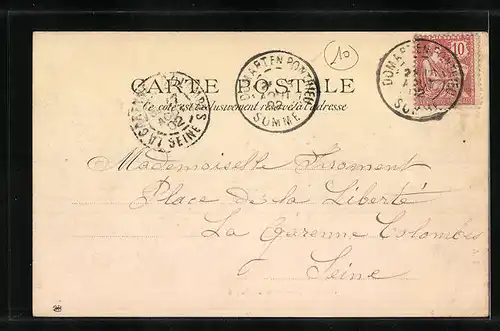 10
CARTE POSTALE
Ce côté est exclusivement réservé à l'adresse
DOMART EN PONTHIEU
SOMME
DOMART EN PONTHIEU
SOMME
10
LA GARENNE
SEINE
Mademoiselle
Place de la Liberté
La Garenne Colombes
Seine